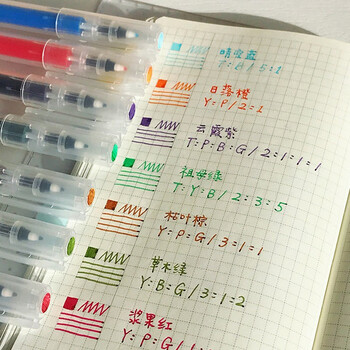 晴空蓝
T:B/5:1
日落橙
Y:P/2:1
云霞紫
T:P:B:G/2:1:1:1
祖母绿
T:Y:B/2:3:5
枯叶棕
Y:P:G/3:1:1
草木绿
Y:B:G/3:1:2
浆果红
Y:P:G/1